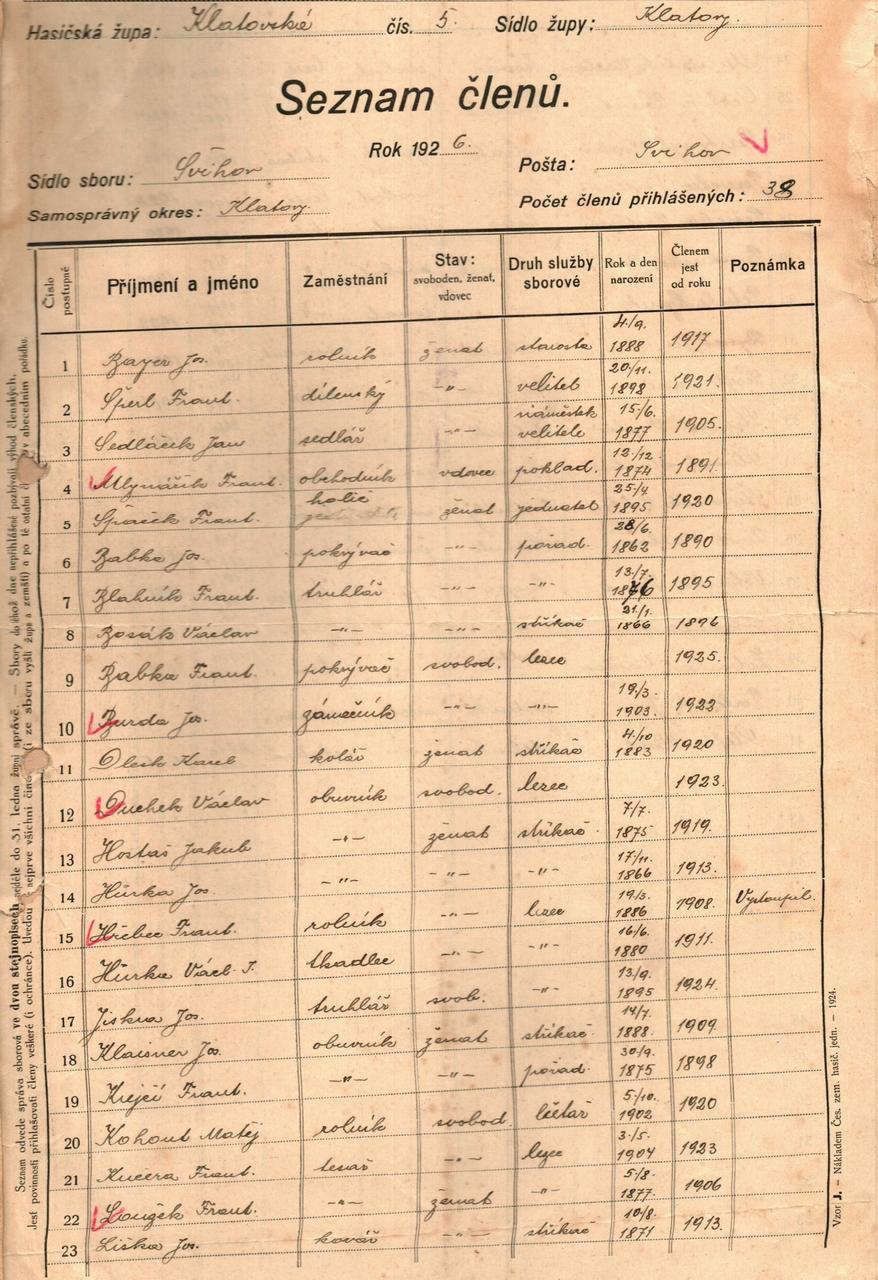 Hasičská župa: Klatovské čís. 5. Sídlo župy: Klatovy.
Seznam členů.
Rok 1926.
Sídlo sboru: Švihov Pošta: Švihov
Samosprávný okres: Klatovy. Počet členů přihlášených: 38
Číslo postupné Příjmení a jméno Zaměstnání Stav: svoboden, ženat, vdovec Druh služby sborové Rok a den narození Členem jest od roku Poznámka
1 Bayer Jos. rolník ženat starosta 4./9. 1888 1917
2 Šperl Frant. dílenský -"- velitel 20/11. 1898 1921.
3 Sedláček Jan sedlář -"- náměstek velitele 15./6. 1877 1905.
4 Mlynářík Frant. obchodník vdovec poklad. 12/12. 1874 1891.
5 Špaček Frant. holič ženat jednatel 25/4 1895 1920
6 Babka Jos. pokrývač -"- pořad. 28/6. 1862 1890
7 Blahník Frant. truhlář -"- -"- 13./7. 1876 1895
8 Bosák Václav -"- -"- stříkač 21/1. 1866 1896
9 Babka Frant. pokrývač svobod. lezec 1925.
10 Burda Jos. zámečník -"- -"- 19/3. 1903. 1922
11 Karel kolář ženat stříkač 4./10 1883 1920
12 Duchek Václav obuvník svobod. lezec 1923.
13 Hostaš Jakub -"- ženat stříkač 7/7. 1875 1919.
14 Hůrka Jos. -"- -"- -"- 17/11. 1866 1913.
15 Hřebec Frant. rolník -"- lezec 19/3. 1886 1908. Vystoupil.
16 Hůrka Václ. I. tkadlec -"- 16/6. 1880 1911.
17 Jiskra Jos. truhlář svob. -"- 13/9. 1895 1924.
18 Klaisner Jos. obuvník ženat stříkač 14/7. 1888. 1909
19 Krejčí Frant. -"- -"- pořad. 30/9. 1875 1898
20 Kohout Matěj rolník svobod. 5/10. 1902 1920
21 Kučera Frant. tesař -"- lezec 3./5. 1904 1923
22 Loužek Frant. -"- ženat -"- 5/8. 1877. 1906
23 Liška Jos. kovář stříkač 10/8. 1871 1913.
Seznam odvede správa sborová ve dvou stejnopisech neděle do 31. ledna župní správě. — Sbory dne nepřihlášené pozbývají výhod členských.
Jest povinností přihlašovati členy veškeré (i ochránce). nejprve všichni i ze sboru vyšlí župa a zemští) a po té ostatní v abecedním pořádku.
Vzor J. — Nákladem Čes. zem. hasič. jedn. — 1924.